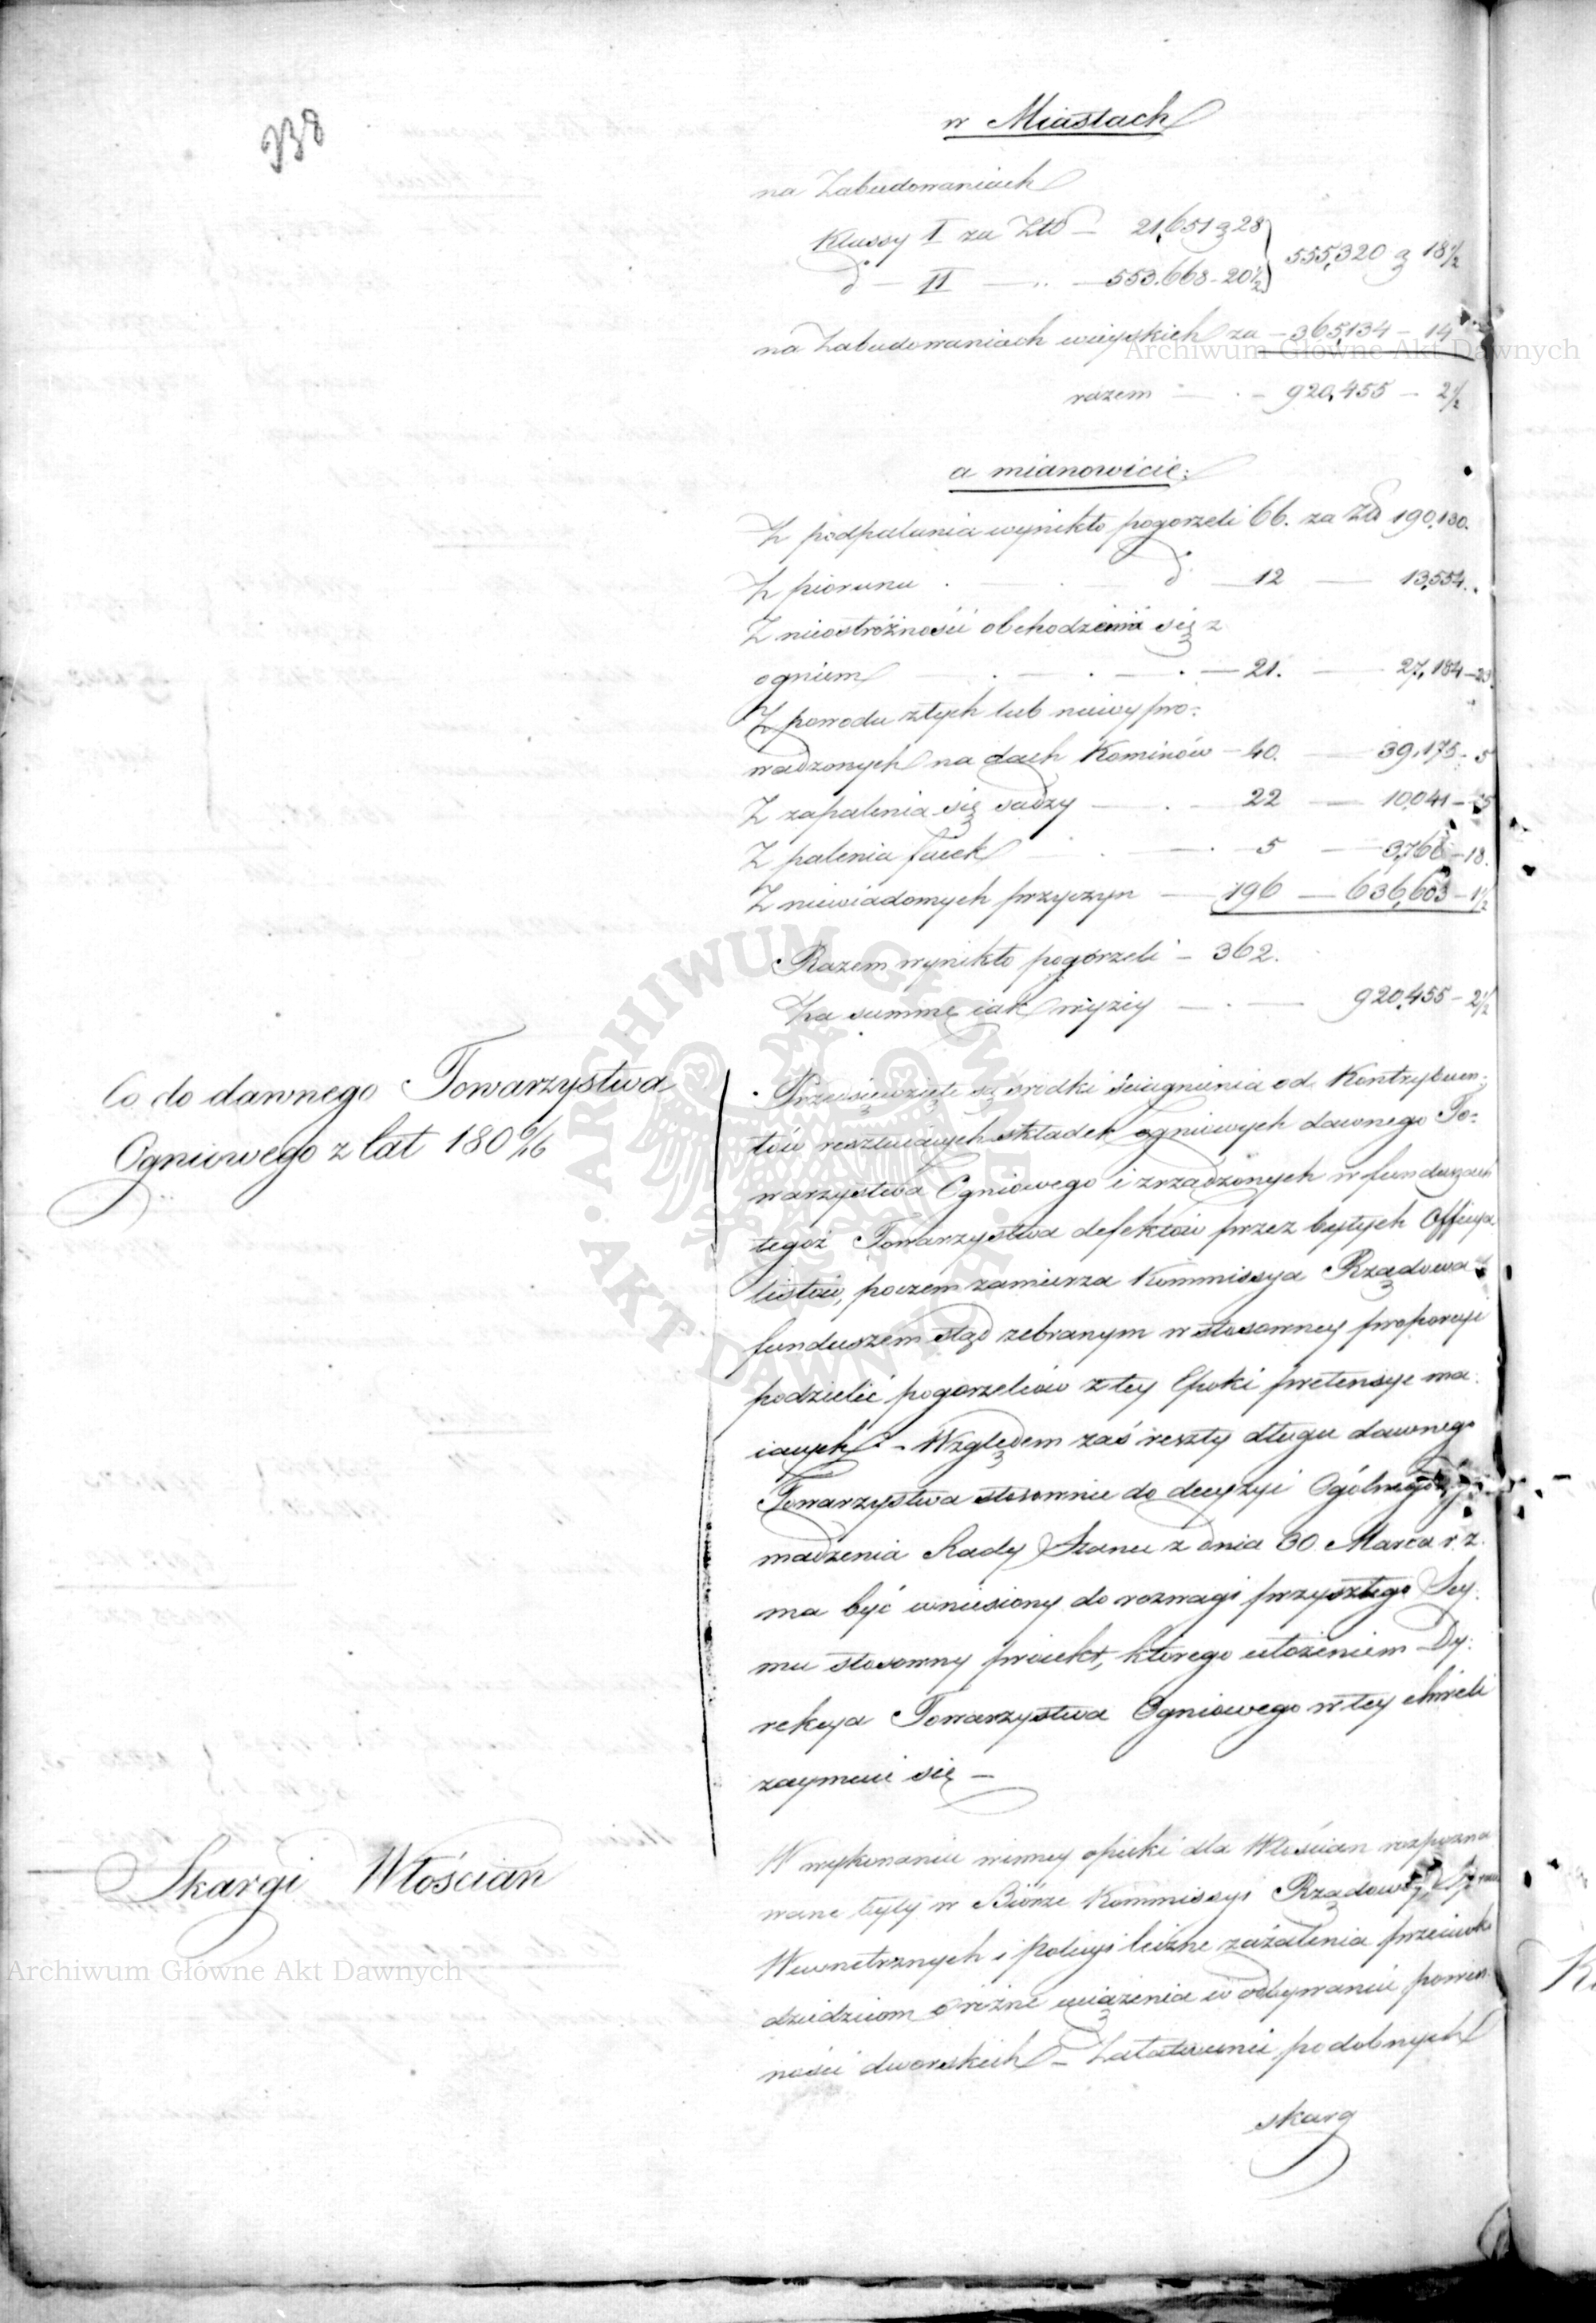 338
w Miastach
na Zabudowaniach
Klassy I za Złt — 21,651 g 28
do — II — .. — 553.668 - 20½
555,320 g 18½
na Zabudowaniach wieyskich za — 365,134 — 14
razem — . — 920,455 — 2½
a mianowicie:
Z podpalania wynikło pogorzeli 66. za Zł 190,130.
Z piorunu . — . — do — 12 — 13,554.
Z nieostróżności obchodzenia się z
ogniem — . — . — . — 21. — 27,184 — 23.
Z powodu złych lub niewypro-
wadzonych na dach Kominów — 40. — 39,175 - 5
Z zapalenia się sadzy — . — 22 — 10,041 — 15
Z palenia faiek — . — . 5 — 3,768 — 18.
Z niewiadomych przyczyn — 196 — 636,603 — 1½
Razem wynikło pogorzeli — 362.
Za summę iak wyżey — . — 920,455 — 2½
Co do dawnego Towarzystwa
Ogniowego z lat 180 9/16
Przedsięwzięte są środki ściągnienia od Kontrybuen-
tów resztuiących składek ogniowych dawnego To-
warzystwa Ogniowego i zrządzonych w funduszach
tegoż Towarzystwa defektów przez byłych Officya-
listów, poczem zamierza Kommissya Rządowa
funduszem stąd zebranym w stosowney proporcyi
podzielić pogorzelców z tey Epoki pretensye ma-
iących. — Względem zaś reszty długu dawnego
Towarzystwa stosownie do decyzyi Ogólnego Zgro-
madzenia Rady Stanu z dnia 30 Marca r. z.
ma być wniesiony do rozwagi przyszłego Sey-
mu stosowny proiekt, którego ułożeniem Dy-
rekcya Towarzystwa Ogniowego w tey chwili
zaymuie się —
Skargi Włościan
W wykonaniu winney opieki dla Włościan rozpozna-
wane były w Biórze Kommissyi Rządowey Spraw
Wewnętrznych i Policyi liczne zażalenia przeciwko
dziedzicom o różne uciążenia w odbywaniu powin-
ności dworskich — Załatwienie podobnych
skarg
Archiwum Główne Akt Dawnych
Archiwum Główne Akt Dawnych
ARCHIWUM GŁÓWNE AKT DAWNYCH